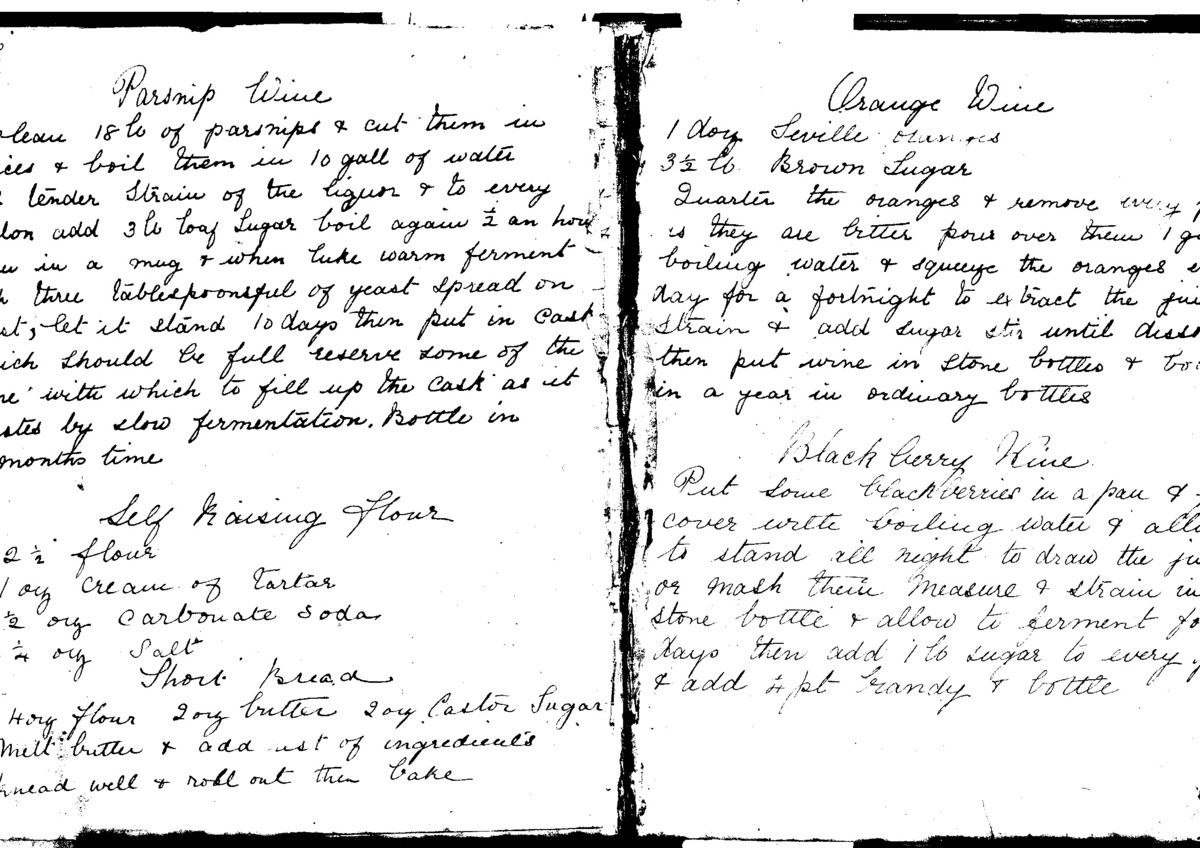 Parsnip Wine
clean 18 lb of parsnips & cut them in
ices & boil them in 10 gall of water
tender Strain of the liquor & to every
lon add 3 lb loaf Sugar boil again ½ an hour
in a mug & when luke warm ferment
three tablespoonsful of yeast spread on
st; let it stand 10 days then put in cask
ich should be full reserve some of the
ne with which to fill up the cask as it
stes by slow fermentation. Bottle in
months time
Self Raising Flour
2 ½ flour
1 oz cream of tartar
½ oz Carbonate Soda
¼ oz Salt
Short Bread
4 oz flour 2 oz butter 2 oz Castor Sugar
Melt butter & add rest of ingredients
knead well & roll out then bake
Orange Wine
1 doz Seville oranges
3 ½ lb Brown Sugar
Quarter the oranges & remove every
is they are bitter pour over them 1 g
boiling water & squeeze the oranges e
day for a fortnight to extract the jui
Strain & add sugar stir until disso
then put wine in stone bottles & bo
in a year in ordinary bottles
Black berry Wine
Put some blackberries in a pan &
cover with boiling water & allo
to stand all night to draw the jui
or mash them Measure & strain in
stone bottle & allow to ferment fo
days then add 1 lb sugar to every g
& add ¼ pt brandy & bottle